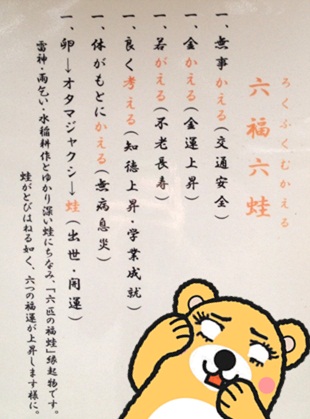 ろくふくむかえる
六福六蛙
一、無事かえる(交通安全)
一、金かえる(金運上昇)
一、若がえる(不老長寿)
一、良く考える(知徳上昇・学業成就)
一、体がもとにかえる(無病息災)
一、卵→オタマジャクシ→蛙(出世・開運)
雷神・雨乞い・水稲耕作とゆかり深い蛙にちなみ、「六匹の福蛙」縁起物です。
蛙がとびはねる如く、六つの福運が上昇します様に。